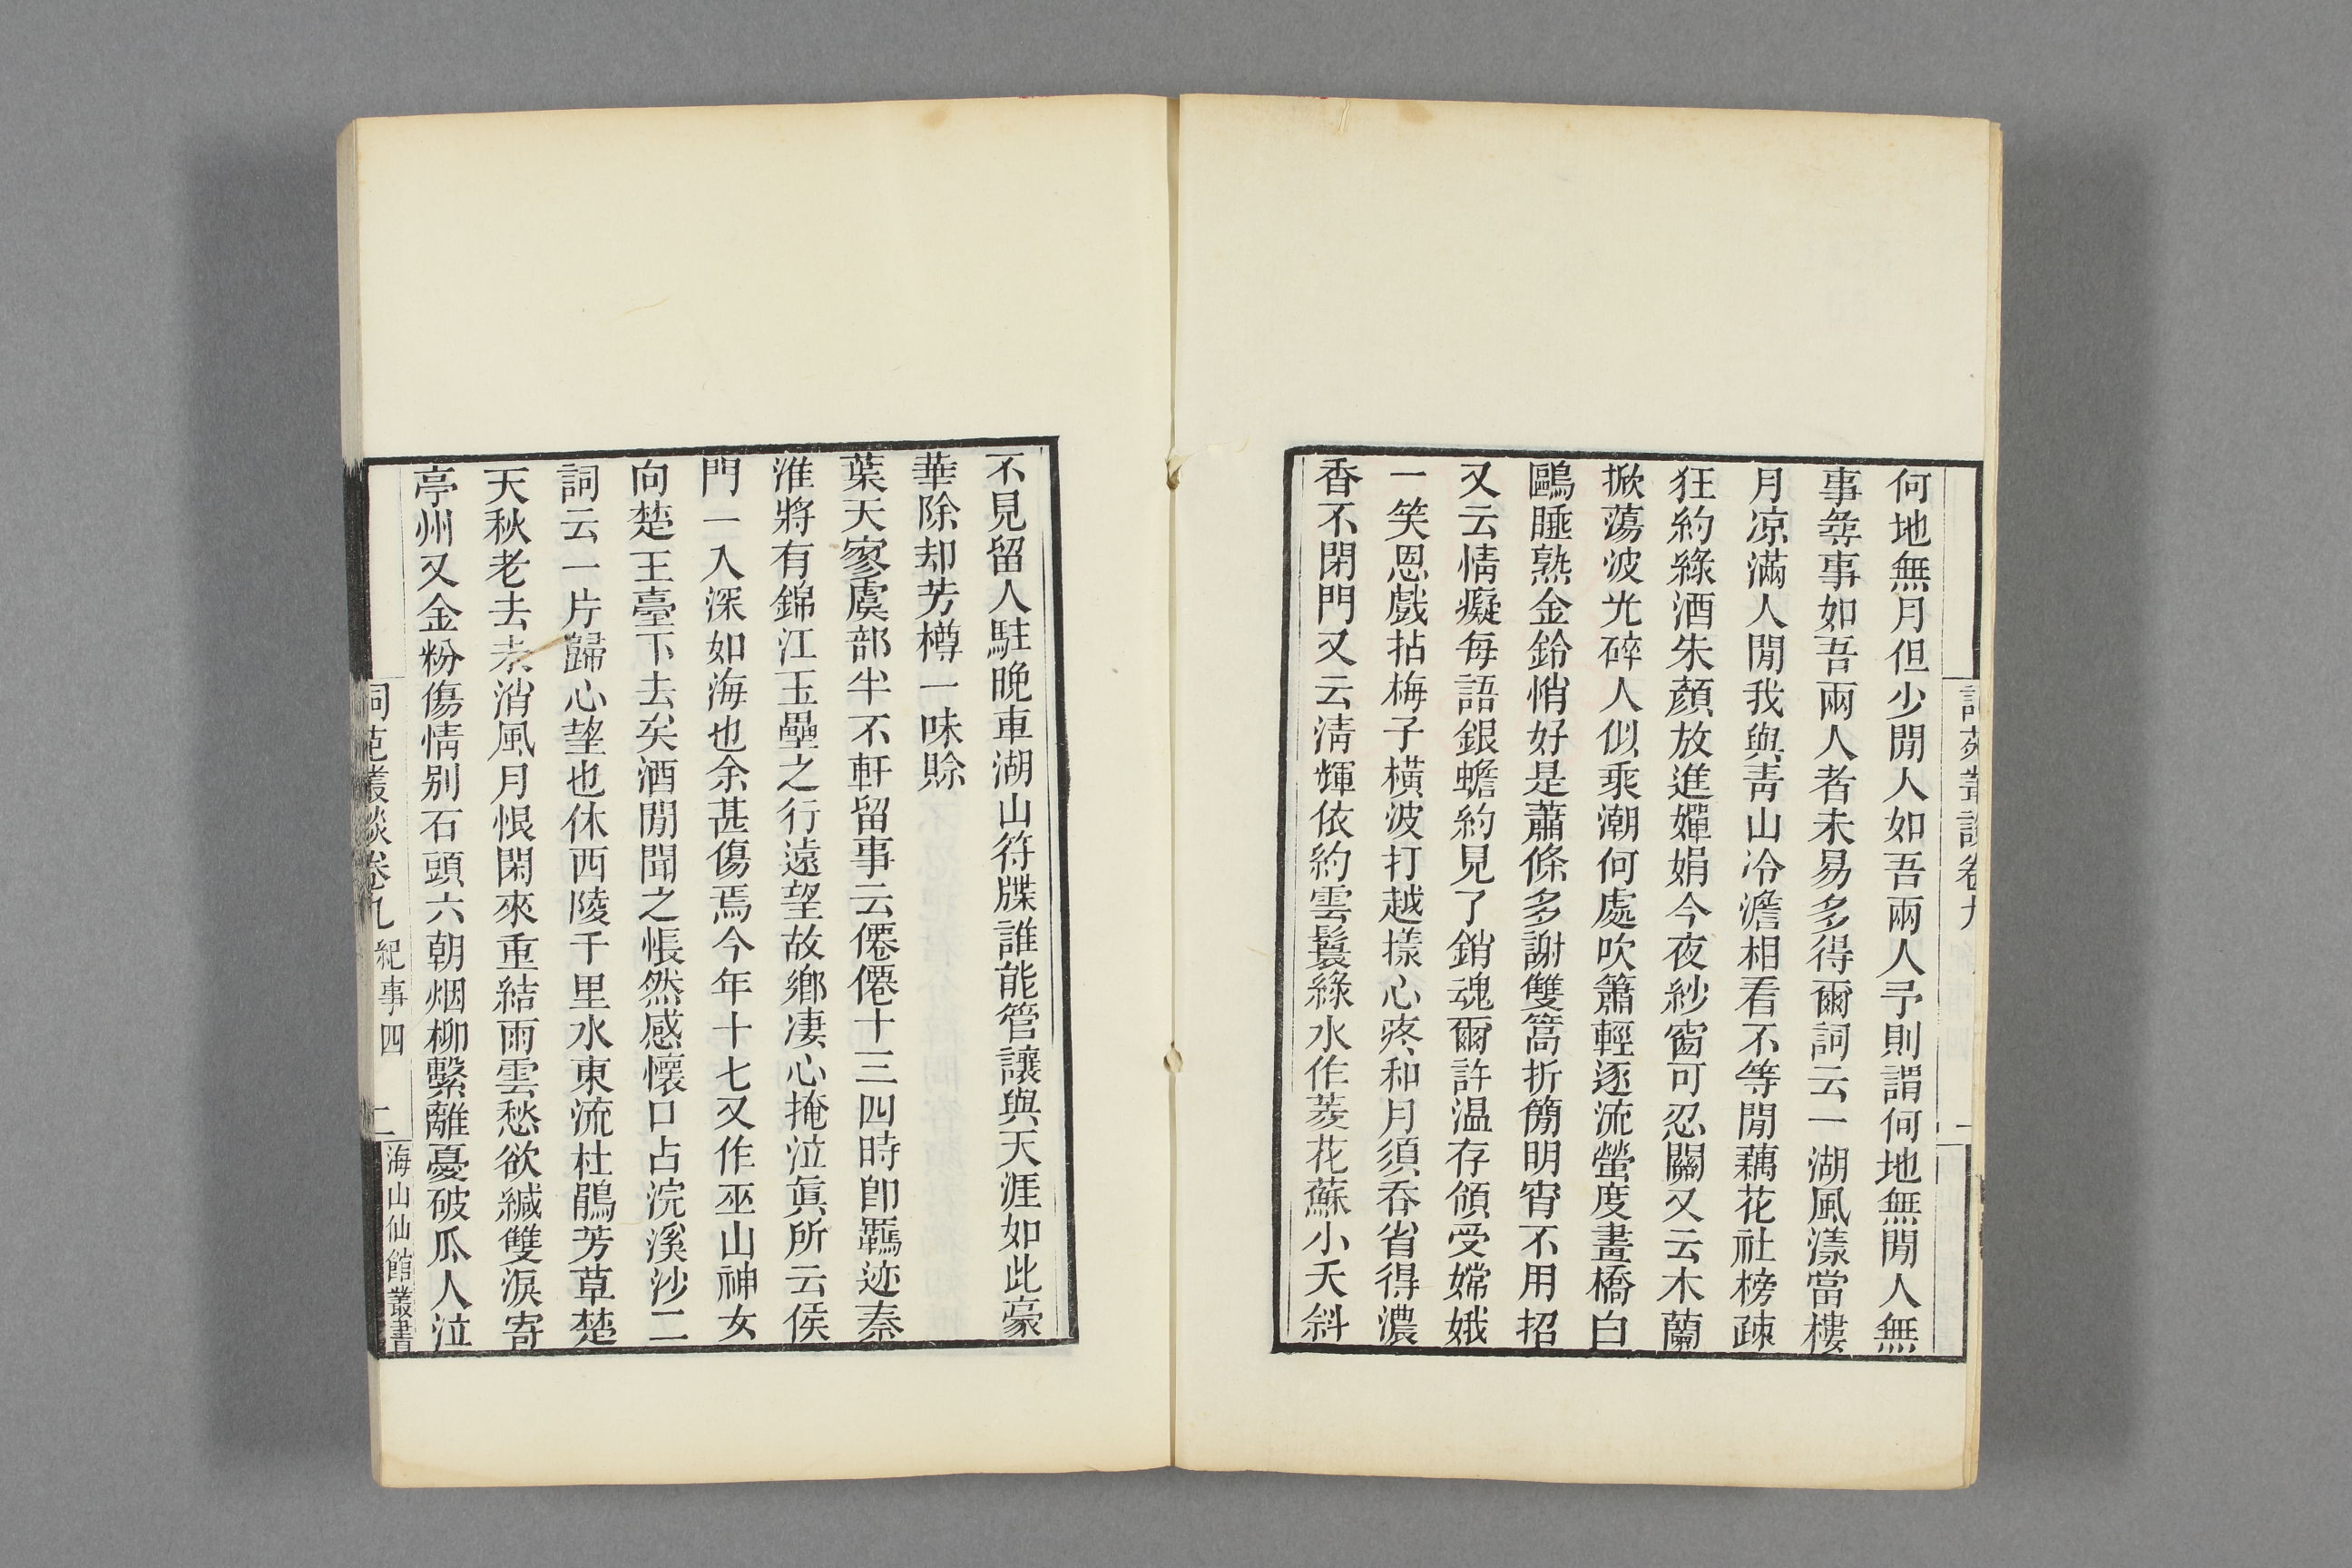 何地無月但少閒人如吾兩人予則謂何地無閒人無
事尋事如吾兩人者未易多得爾詞云一湖風漾當樓
月凉滿人閒我與青山冷澹相看不等閒藕花社榜疎
狂約綠酒朱顏放進嬋娟今夜紗窗可忍關又云木蘭
掀蕩波光碎人似乘潮何處吹簫輕逐流螢度畫橋白
鷗睡熟金鈴悄好是蕭條多謝雙篙折簡明宵不用招
又云情癡每語銀蟾約見了銷魂爾許温存領受嫦娥
一笑恩戲拈梅子橫波打越樣心疼和月須吞省得濃
香不閉門又云淸輝依約雲鬟綠水作菱花蘇小夭斜
不見留人駐晚車湖山符牒誰能管讓與天涯如此豪
華除却芳樽一味賒
葉天寥虞部半不軒留事云僊僊十三四時卽羈迹秦
淮將有錦江玉壘之行遠望故鄉凄心掩泣眞所云侯
門一入深如海也余甚傷焉今年十七又作巫山神女
向楚王臺下去矣酒閒聞之悵然感懷口占浣溪沙二
詞云一片歸心望也休西陵千里水東流杜鵑芳草楚
天秋老去未消風月恨閑來重結雨雲愁欲緘雙淚寄
亭州又金粉傷情别石頭六朝烟柳繫離憂破瓜人泣
詞苑叢談卷九 紀事四 二 海山仙館叢書